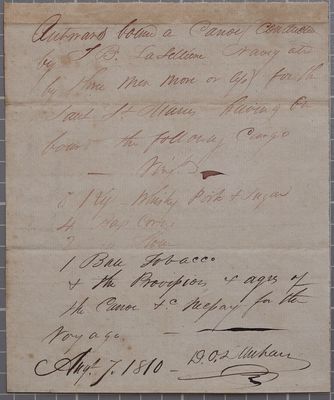 Outward bound a Canoe conducted
by J. B. Laselliere Navigated
by three men more or less for the
Saut St. Maries having on
board the following Cargo
Kegs Whisky Pork & Sugar
4 Corn
1 Bale Tobacco
& the Provisions & ages of
the Canoe &c necessary for the
Voyage.
Augt. 7. 1810